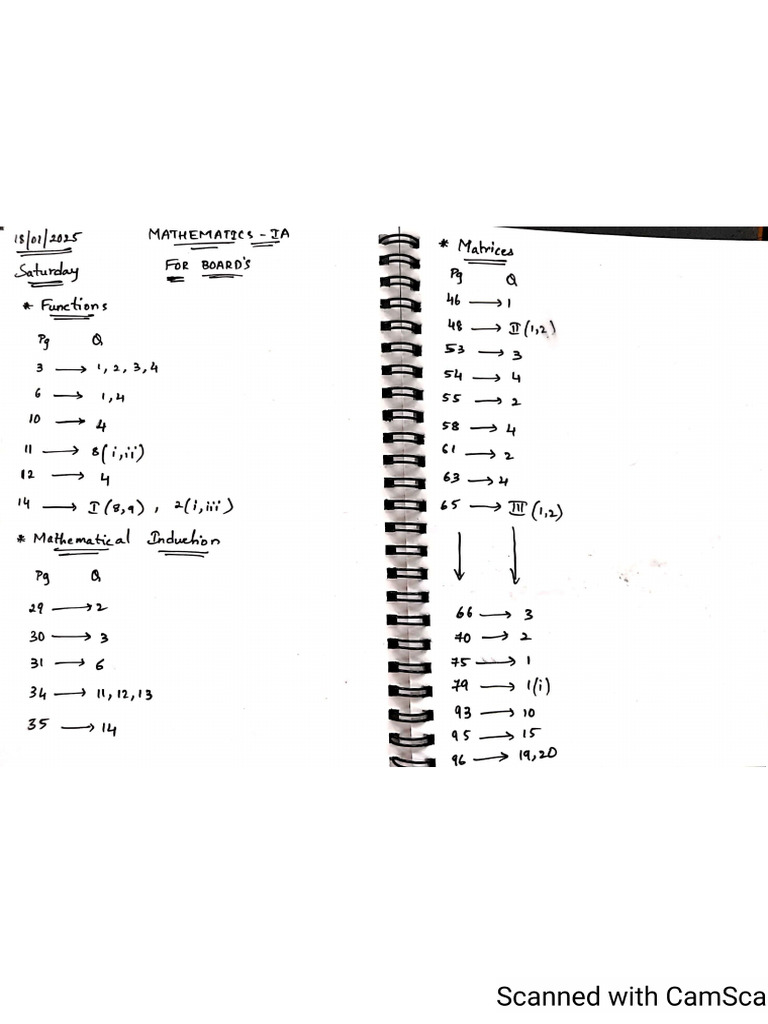 18/01/2025 MATHEMATICS - IA
Saturday FOR BOARD'S
* Functions
Pg Q
3 → 1, 2, 3, 4
6 → 1, 4
10 → 4
11 → 8(i, ii)
12 → 4
14 → I (8, 9) , 2(i, iii)
* Mathematical Induction
Pg Q
29 → 2
30 → 3
31 → 6
34 → 11, 12, 13
35 → 14
* Matrices
Pg Q
46 → 1
48 → II (1, 2)
53 → 3
54 → 4
55 → 2
58 → 4
61 → 2
63 → 4
65 → III (1, 2)
↓ ↓
66 → 3
70 → 2
75 → 1
79 → 1(i)
93 → 10
95 → 15
96 → 19, 20
Scanned with CamSca